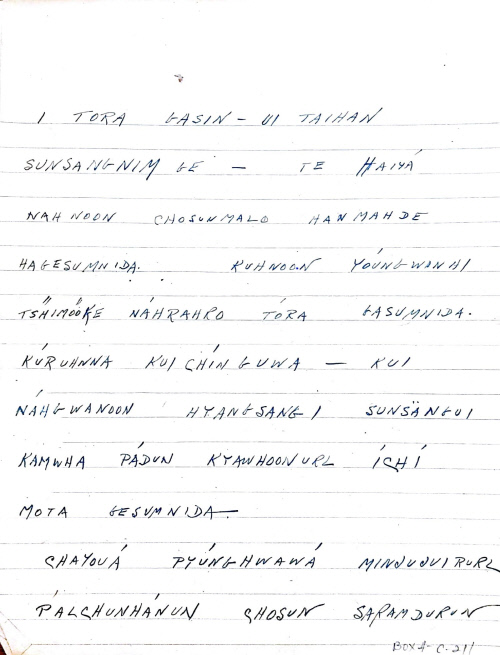 I TORA GASIN - UI TAIHAN
SUNSANGNIM GE — TE HAIYÁ
NAH NOON CHOSUNMALO HANMAHDE
HAGESUMNIDA. KUHNOON YÓUNGWONHI
TSHIMOOKE NÁHRAHRO TÓRA GASUMNIDA.
KÚRUHNNA KUI CHÍNGUWA — KUI
NÁHGWANOON HYANGSANG I SUNSÄNGUI
KAMWHA PÁDUN KYAWHOONURL ÍCHÍ
MOTA GESUMNIDA—
CHAYOUÁ PYÚNGHWAWÁ MINJUJUIRURL
PÁLCHUNHÁNUN CHOSUN SARAMDURUN
BOX 4-C-211